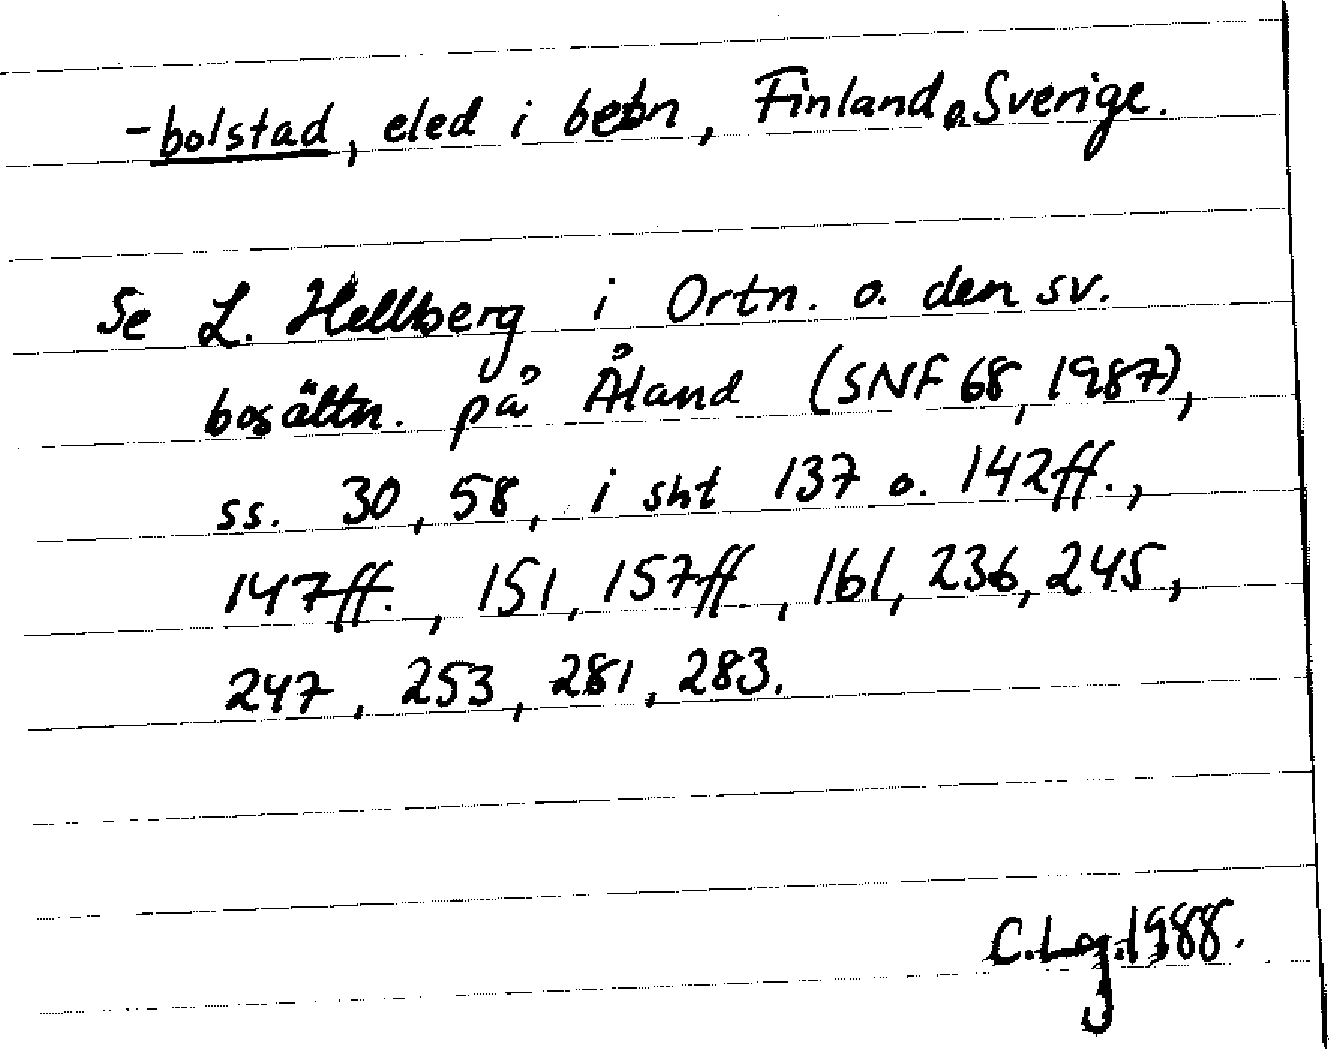 -bolstad, eled i bebn, Finland o. Sverige.
Se L. Hellberg i Ortn. o. den sv.
bosättn. på Åland (SNF 68, 1987),
ss. 30, 58, i sht 137 o. 142ff.,
147ff., 151, 157ff, 161, 236, 245,
247, 253, 281, 283.
C. Lg. 1988.